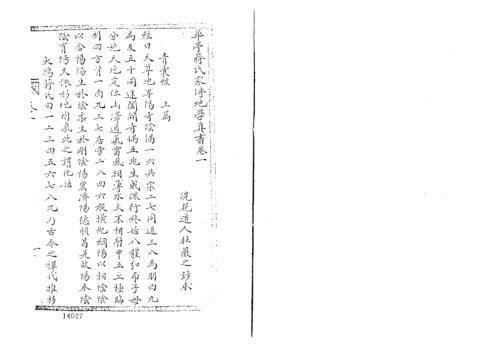 華亭蔣氏家傳地學真書卷一
浣花道人杜薇之鈔本
青囊經　上篇
經曰天尊地卑陽奇陰偶一六共宗二七同道三八為朋四九
為友五十同途闔闢奇偶五兆生成流行終始八體弘布子母
分施天地定位山澤通氣雷風相薄水火不相射中五立極臨
制四方背一面九三七居旁二八四六縱橫紀綱陽以相陰陰
以含陽陽生於陰柔生於剛陰德宏濟陽德順昌是故陽本陰
陰育陽天依形地附氣此之謂化始
大鴻蔣氏曰一二三四五六七八九乃古今之禪代推移
卷一
14027